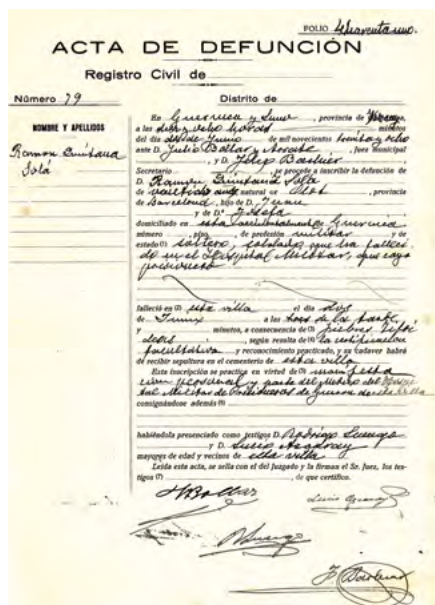 FOLIO Cuarenta uno.
ACTA DE DEFUNCIÓN
Registro Civil de
Número 79
Distrito de
NOMBRE Y APELLIDOS
Ramon Quintana
Solá
En Guernica y Luno, provincia de Vizcaya,
a las diez y ocho horas minutos
del día de Junio de mil novecientos treinta y ocho
ante D. Julio Bollar y , Juez municipal
, y D. Felip Basterr
Secretario , se procede a inscribir la defunción de
D. Ramón Quintana Solá
de veintidós años natural de Olot, provincia
de Barcelona, hijo de D. Juan
y de D.ª Josefa
domiciliado en esta accidentalmente Guernica
número , piso , de profesión militar y de
estado soltero, soldado, que ha falleci
do en el Hospital Militar, que cayó
prisionero
falleció en esta villa el día dos
de Junio a las tres de la tarde
y minutos, a consecuencia de fiebres tifoi
deas, según resulta de la certificación
facultativa y reconocimiento practicado, y su cadáver habrá
de recibir sepultura en el cementerio de esta villa
Esta inscripción se practica en virtud de manifesta
ción personal, y parte del Médico del Hospi
tal Militar de Prisioneros de Guerra de esta Villa
consignándose además
habiéndola presenciado como testigos D. Rodrigo Luengo
y D. Lucio
mayores de edad y vecinos de esta villa
Leída esta acta, se sella con el del Juzgado y la firman el Sr. Juez, los tes-
tigos , de que certifico.
J Bollar
R Luengo